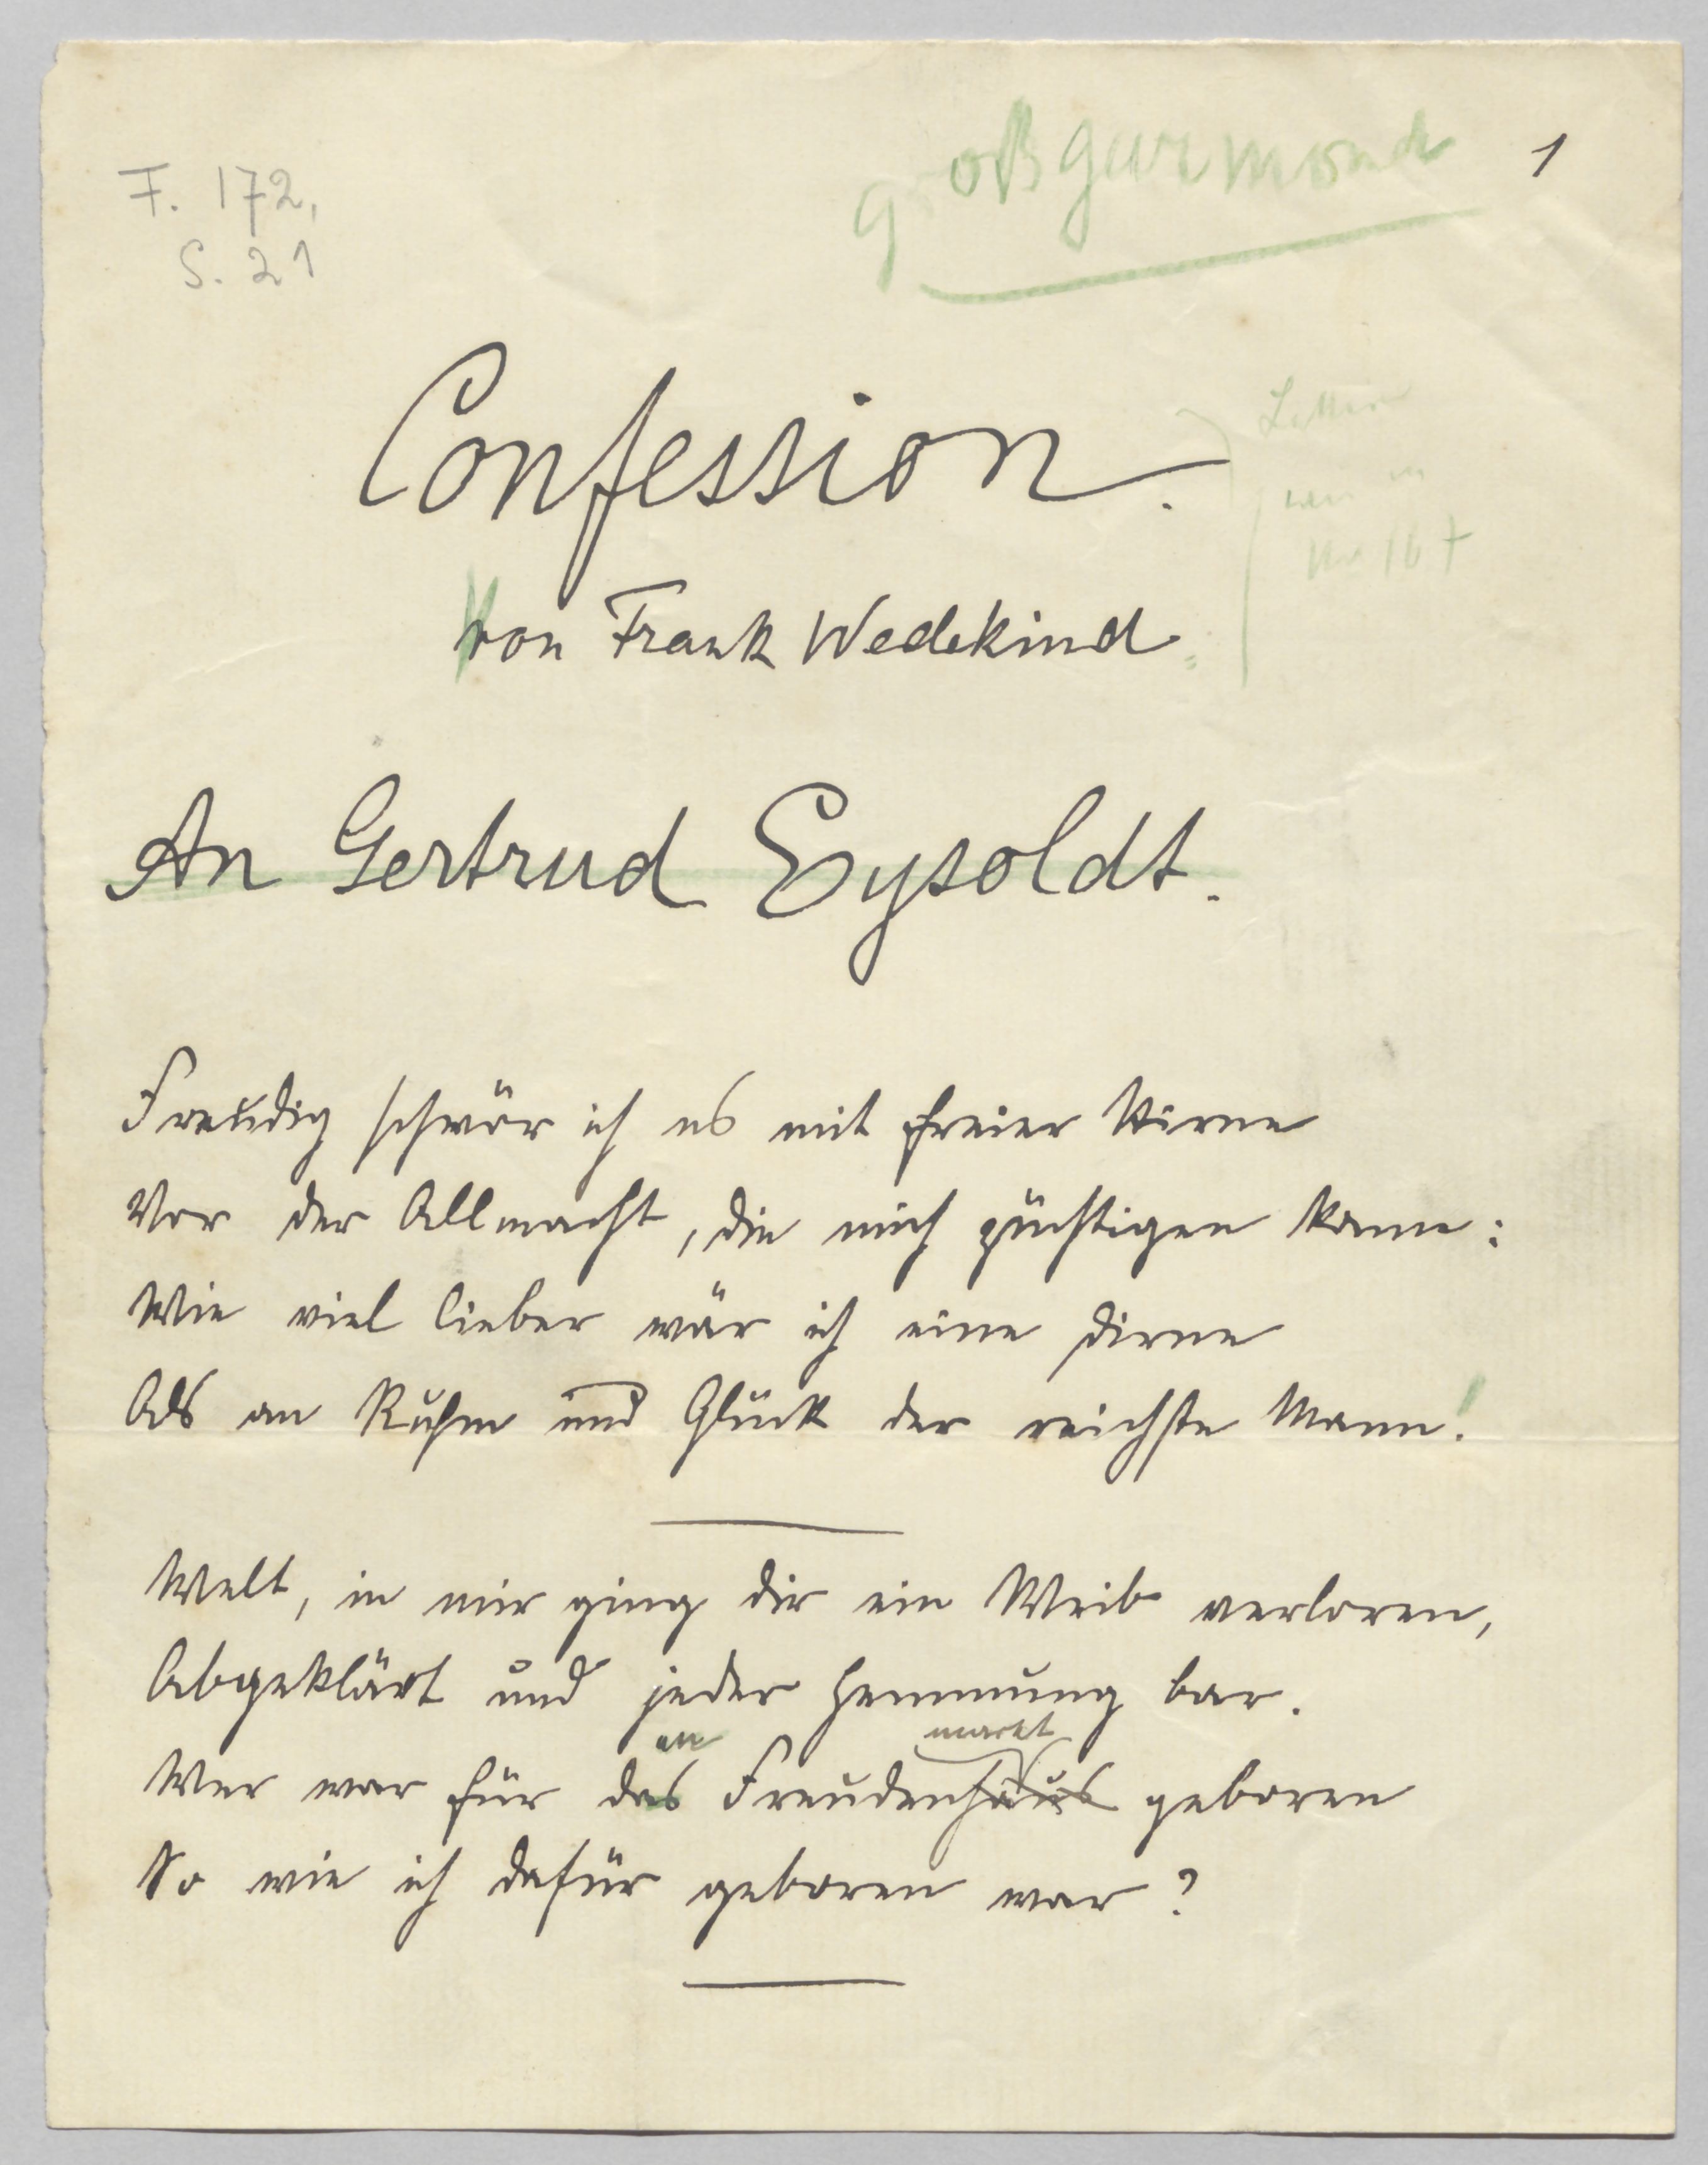 F. 172,
S. 21
großgarmond
1
Confession.
Lettern
wie in
Nr 167
Von Frank Wedekind
An Gertrud Eysoldt.
Freudig schwör ich es mit freier Stirne
Vor der Allmacht, die mich züchtigen kann:
Wie viel lieber wär ich eine Dirne
Als an Ruhm und Glück der reichste Mann!
Welt, in mir ging dir ein Weib verloren,
Abgeklärt und jeder Hemmung bar.
en markt
Wer war für das Freudenhaus geboren
So wie ich dafür geboren war?